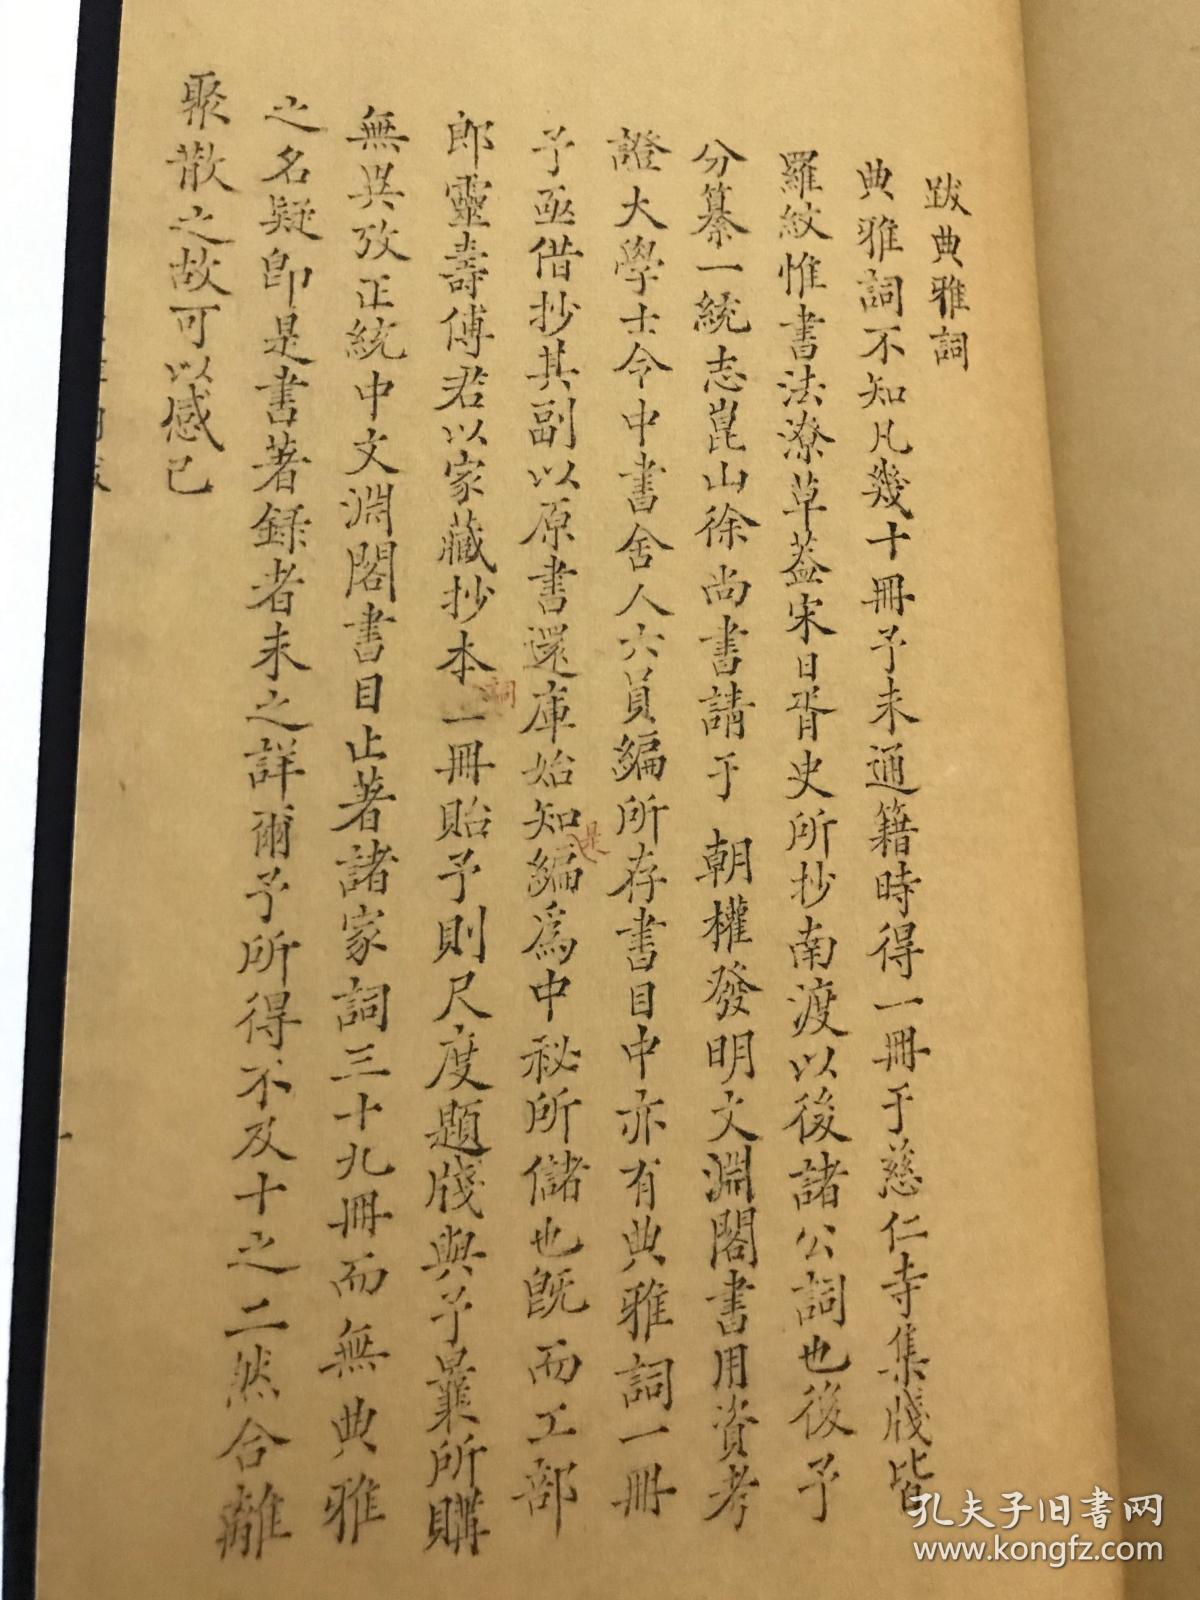 跋典雅詞
典雅詞不知凡幾十冊予未通籍時得一冊于慈仁寺集牋皆
羅紋惟書法潦草葢宋日胥史所抄南渡以後諸公詞也後予
分纂一統志崑山徐尚書請于 朝權發明文淵閣書用資考
證大學士令中書舍人六員編所存書目中亦有典雅詞一冊
予亟借抄其副以原書還庫始知編爲中祕所儲也旣而工部
是
郎靈壽傅君以家藏抄本一冊貽予則尺度題牋與予曩所購
詞
無異攷正統中文淵閣書目止著諸家詞三十九冊而無典雅
之名疑卽是書著錄者未之詳爾予所得不及十之二然合離
聚散之故可以感已
孔夫子旧书网
www.kongfz.com